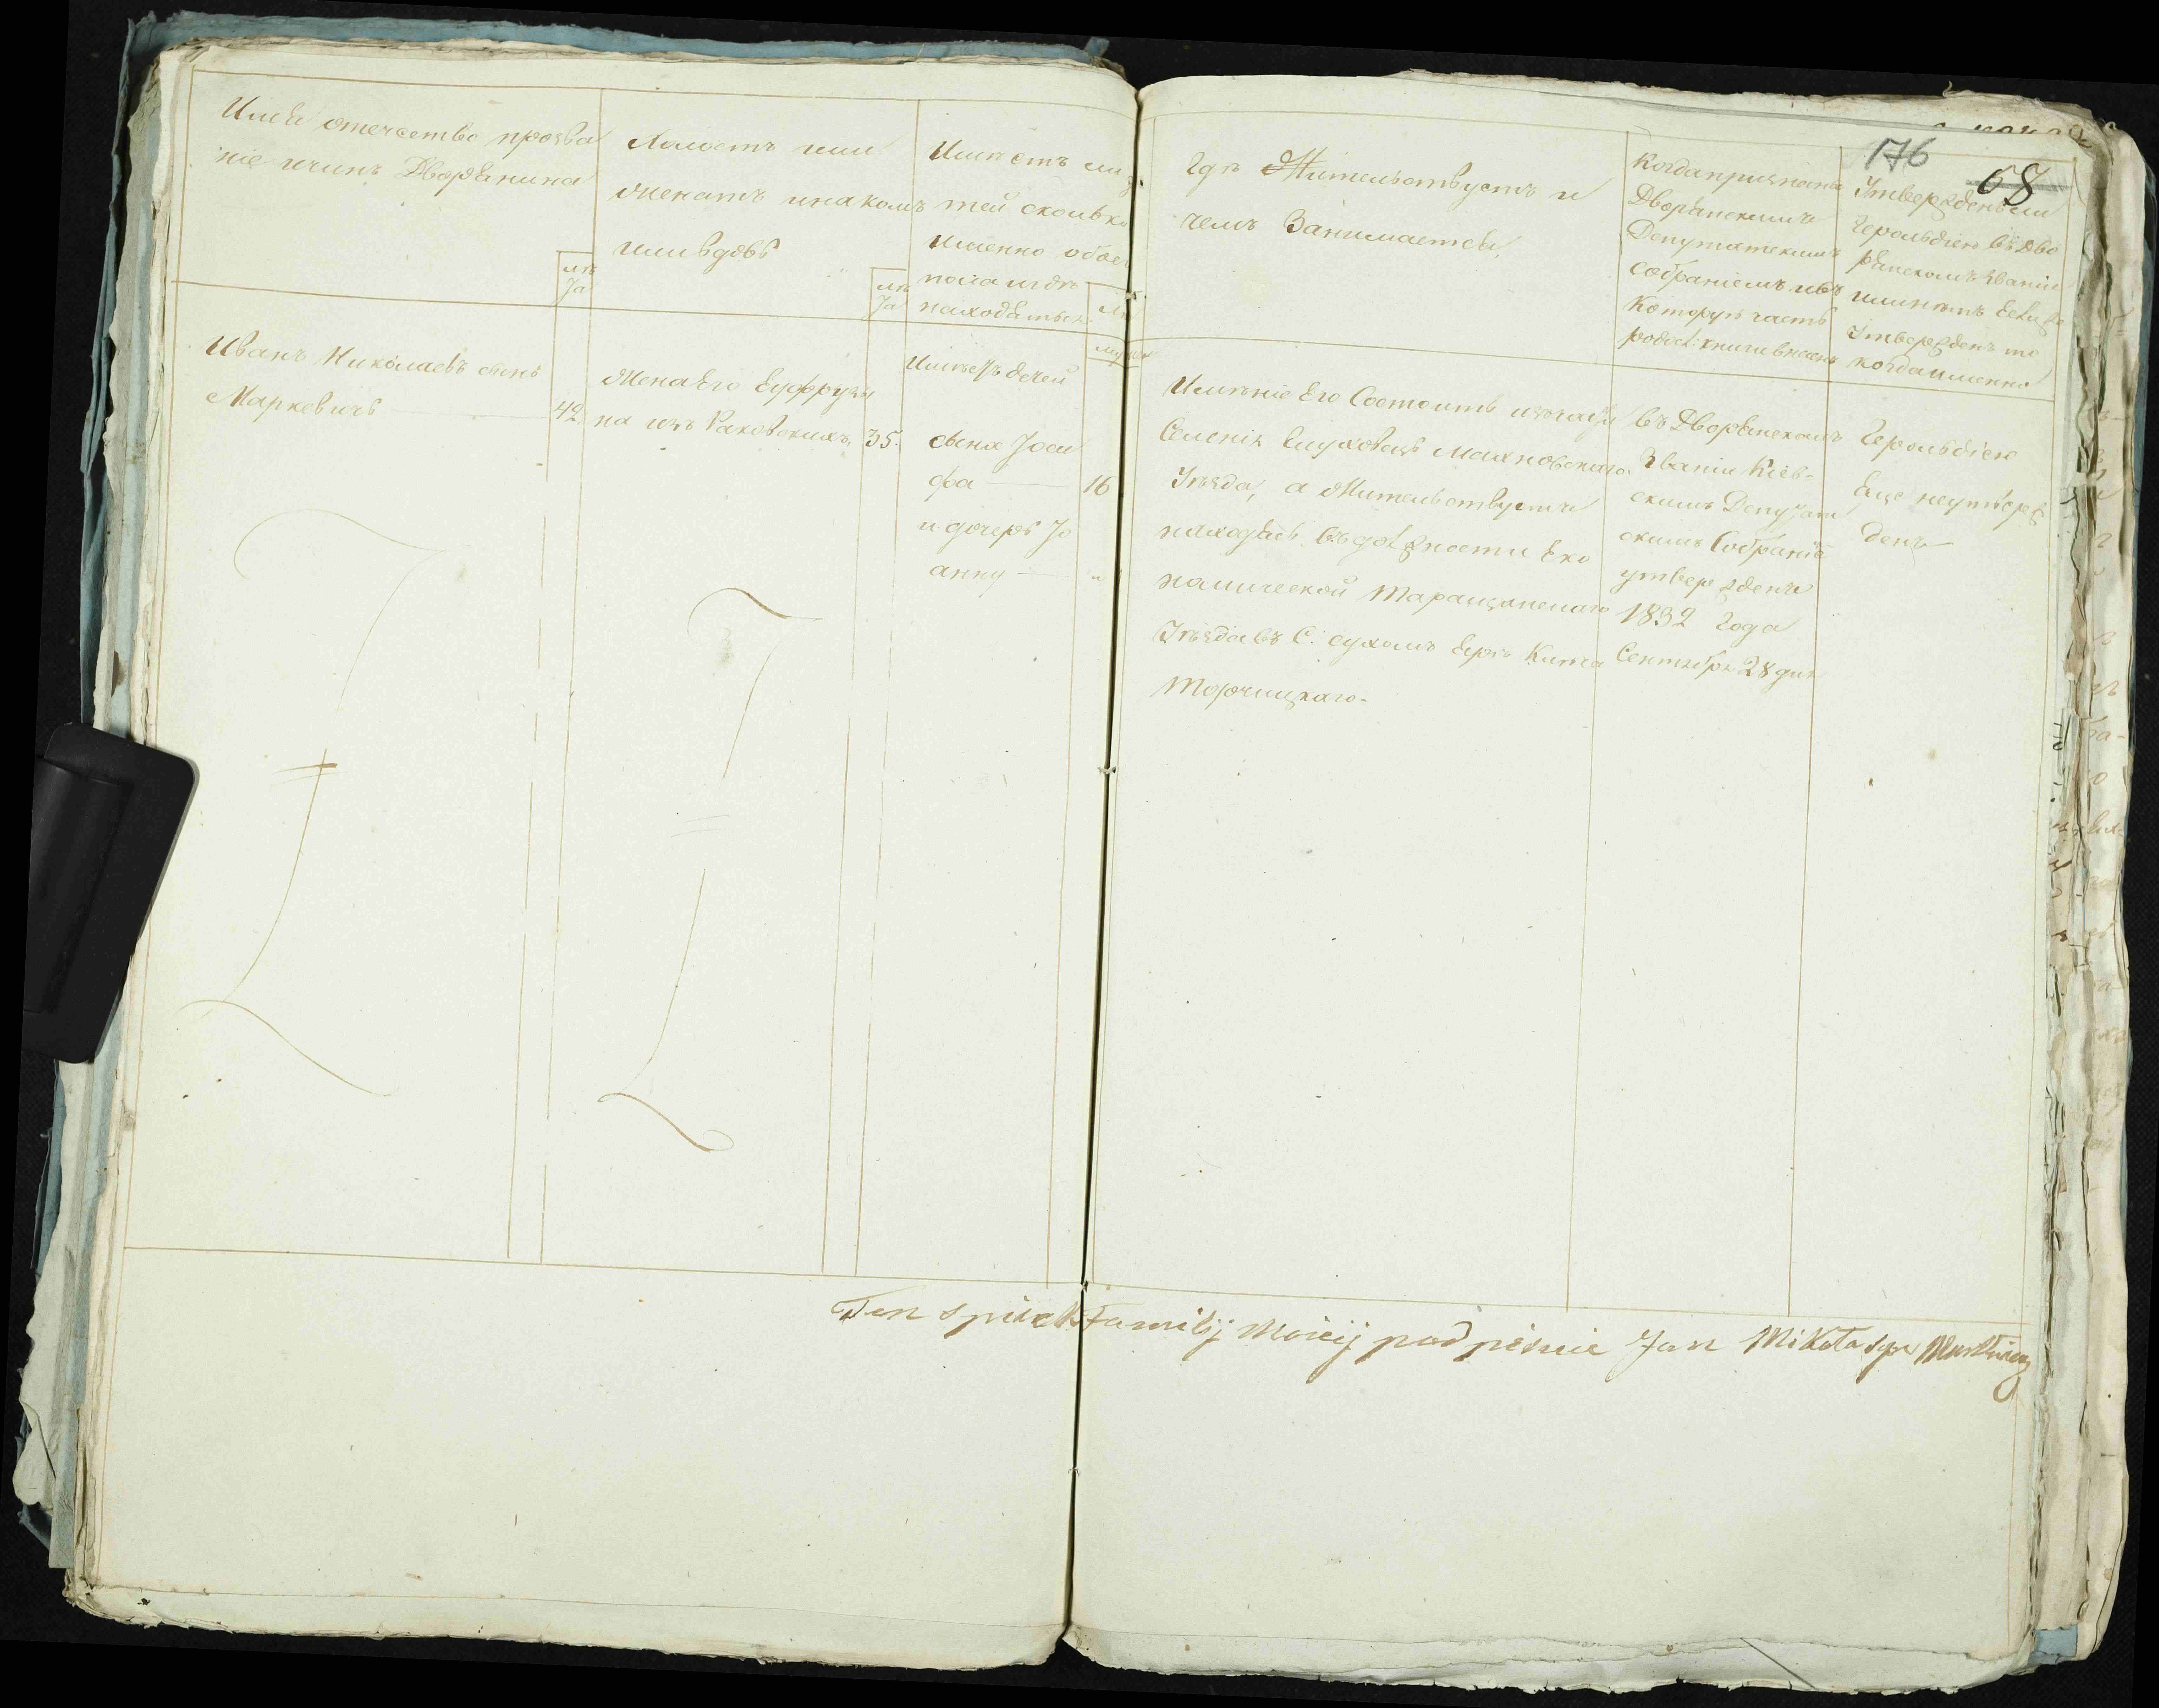 176
68
Имя отечество прозва
ніе и чинъ Дворянина
лѣ
та
Холостъ или
женатъ и на комъ
или вдовъ
лѣ
та
Имѣетъ ли д.
тей сколько
именно обоего
пола и гдѣ
находятся
лѣ
Гдѣ Жительствуетъ и
чемъ Занимается.
Когда признанъ
Дворянскимъ
Депутатскимъ
собраніемъ и въ
Которую часть
родос: книги внесенъ
Утвержденъ ли
Герольдіею въ Дво
рянскомъ званіи
или нѣтъ Ежели
Утвержденъ то
когда именно
Иванъ Николаевъ сынъ
Маркевичъ 42.
Жена Его Еуфрузы
на изъ Раковскихъ. 35.
Имѣетъ дѣтей
сына Іоси
фа 16
и дочерь Іо
анну "
Имѣніе Его Состоитъ изъ части
Селенія Глуховецъ Махновскаго
Уѣзда, а Жительствуетъ
находясь въ должности Еко
номической Таращанскаго
Уѣзда въ С. сухомъ Ерѣ Кита
Торчицкаго.
въ Дворянскомъ
Званіи Кіев-
скимъ Депутат
скимъ Собраніе
утвержденъ
1832 Года
Сентября 28 дня
Герольдіею
Еще неутверж
денъ
Ten spisek Familij Moieij podpisuie Jan Mikołaja Markiewicz